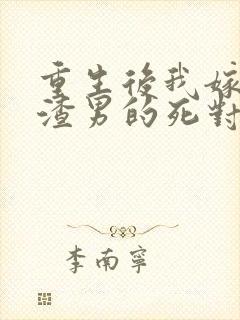 重生後我嫁
渣男的死對
李南寧